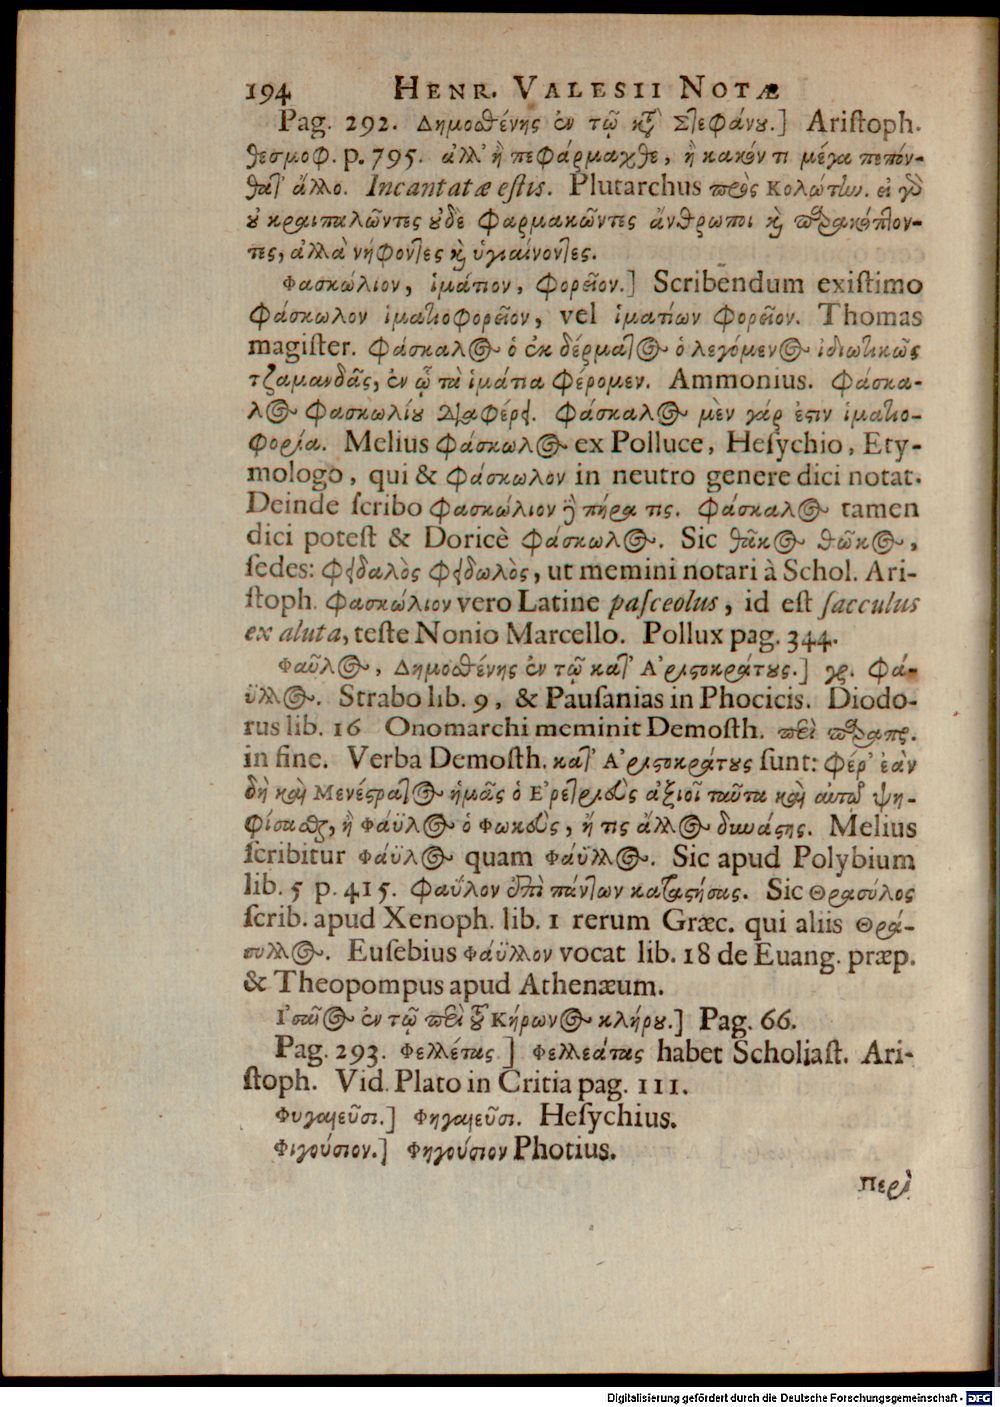 194 HENR. VALESII NOTÆ
Pag. 292. Δημοσθένης ἐν τῷ κτ̃ Στεφάνου.] Ariſtoph.
θεσμοφ. p. 795. ἀλλ' ἢ πεφάρμαχθε, ἢ κακόν τι μέγα πεπόν-
θατ' ἄλλο. Incantatæ eſtis. Plutarchus πρὸς Κολώτην. εἰ γὸ
οὐ κραιπαλῶντες οὐδὲ φαρμακῶντες ἄνθρωποι καὶ παρακόπτον-
τες, ἀλλὰ νήφοντες καὶ ὑγιαίνοντες.
Φασκώλιον, ἱμάτιον, φορεῖον.] Scribendum exiſtimo
φάσκωλον ἱματιοφορεῖον, vel ἱματίων φορεῖον. Thomas
magiſter. φάσκαλος ὁ ἐκ δέρματος ὁ λεγόμενος ἰδιωτικῶς
τζαμανδᾶς, ἐν ᾧ τὰ ἱμάτια φέρομεν. Ammonius. φάσκα-
λος φασκωλίου διαφέρει. φάσκαλος μὲν γάρ ἐστιν ἱματιο-
φορία. Melius φάσκωλος ex Polluce, Heſychio, Ety-
mologo, qui & φάσκωλον in neutro genere dici notat.
Deinde ſcribo φασκώλιον ἢ πήρα τις. φάσκαλος tamen
dici poteſt & Doricè φάσκωλος. Sic θᾶκος θῶκος,
ſedes: φειδαλὸς φειδωλὸς, ut memini notari à Schol. Ari-
ſtoph. φασκώλιον vero Latine paſceolus, id eſt ſacculus
ex aluta, teſte Nonio Marcello. Pollux pag. 344.
Φαῦλος, Δημοσθένης ἐν τῷ κατ' Ἀριστοκράτους.] γρ. Φά-
ϋλλος. Strabo lib. 9, & Pauſanias in Phocicis. Diodo-
rus lib. 16 Onomarchi meminit Demoſth. περὶ παραπρ.
in fine. Verba Demoſth. κατ' Ἀριστοκράτους ſunt: φέρ' ἐὰν
δὴ καὶ Μενέστρατος ἡμᾶς ὁ Ἐρετριεὺς ἀξιοῖ ταῦτα καὶ αὐτῷ ψη-
φίσαθς, ἢ Φάϋλος ὁ Φωκεὺς, ἤ τις ἄλλος δυνάστης. Melius
ſcribitur Φάϋλος quam Φάϋλλος. Sic apud Polybium
lib. 5 p. 415. Φαύλον ἐπὶ πάντων καταστήσας. Sic Θρασύλος
ſcrib. apud Xenoph. lib. 1 rerum Græc. qui aliis Θρά-
συλλος. Euſebius Φάϋλλον vocat lib. 18 de Euang. præp.
& Theopompus apud Athenæum.
Ἰσαῖος ἐν τῷ περὶ τοῦ Κήρωνος κλήρου.] Pag. 66.
Pag. 293. Φελλέτας] Φελλεάτας habet Scholiaſt. Ari-
ſtoph. Vid. Plato in Critia pag. 111.
Φυγαιεῦσι.] Φηγαιεῦσι. Heſychius.
Φιγούσιον.] Φηγούσιον Photius.
Περὶ
Digitalisierung gefördert durch die Deutsche Forschungsgemeinschaft - DFG